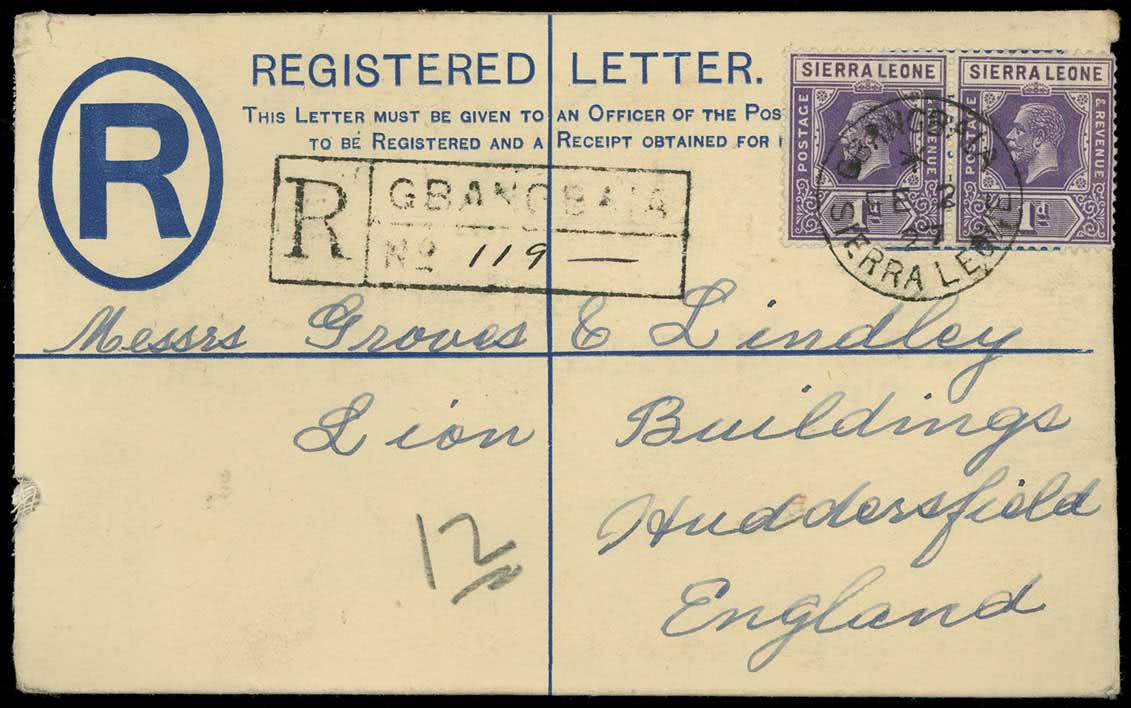 R
REGISTERED LETTER.
THIS LETTER MUST BE GIVEN TO AN OFFICER OF THE POS
TO BE REGISTERED AND A RECEIPT OBTAINED FOR I
SIERRA LEONE
POSTAGE & REVENUE
1D
SIERRA LEONE
POSTAGE & REVENUE
1D
GBANGBAIA
FE 2
27
SIERRA LEONE
R GBANGBAIA
No 119 —
Messrs Groves & Lindley
Lion Buildings
Huddersfield
England
12